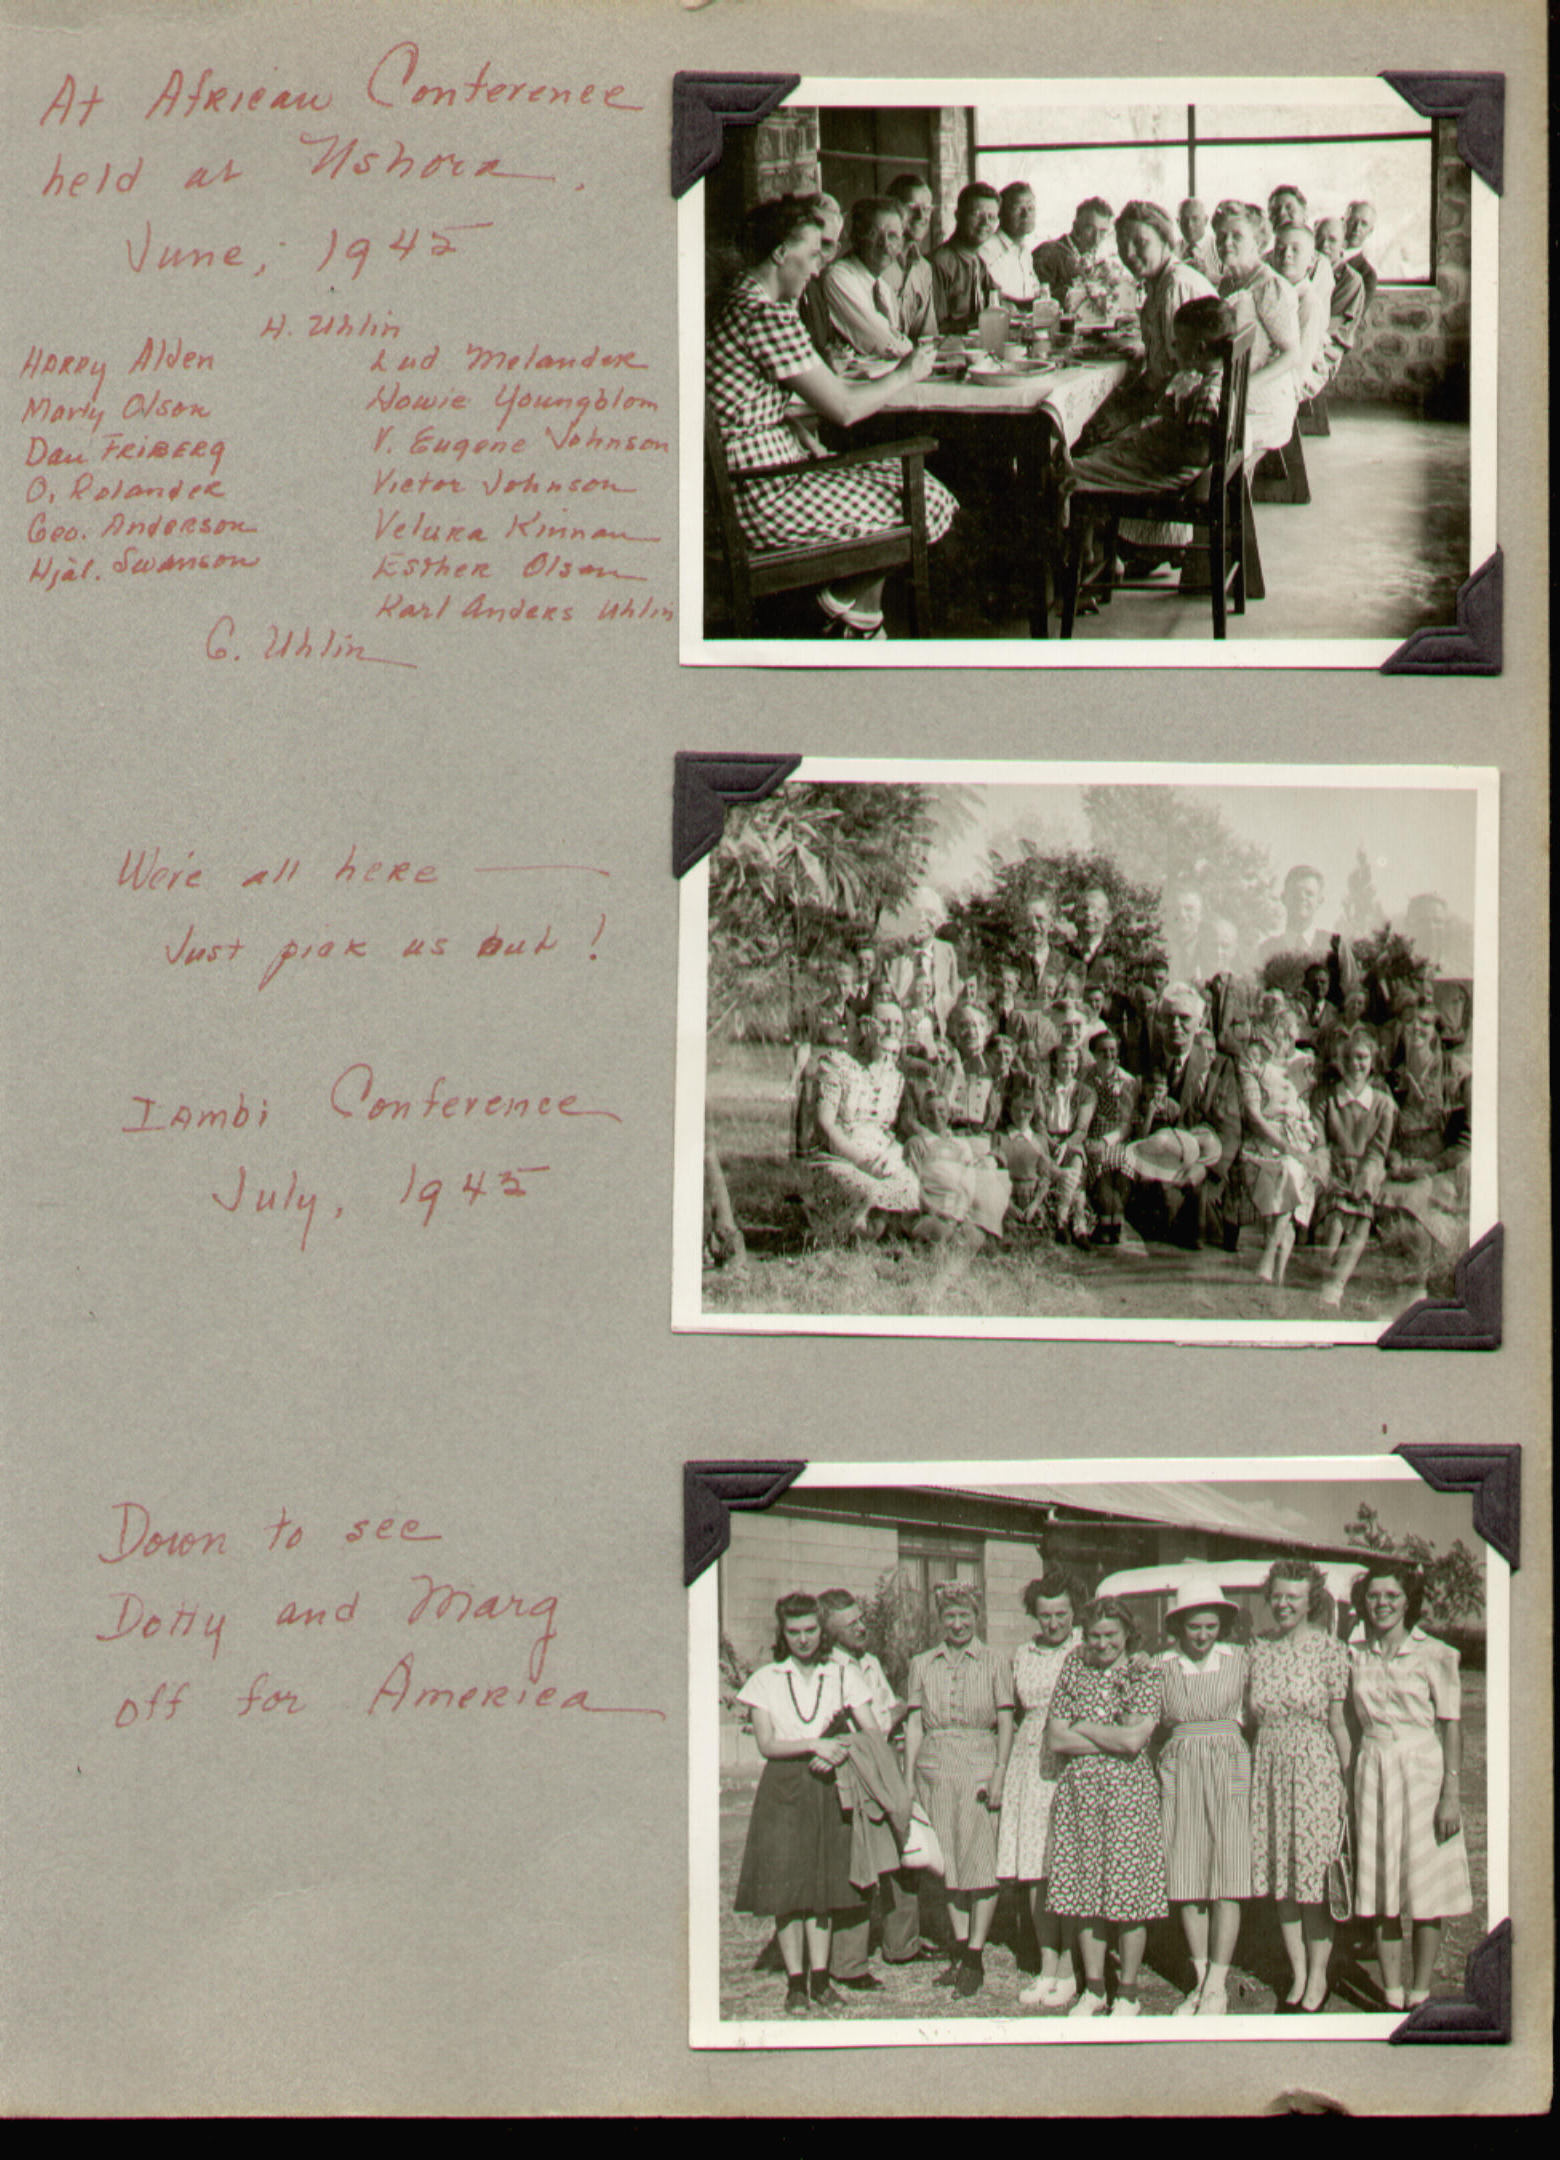 At African Conference
held at Ushora.
June, 1945
H. Uhlin
Harry Alden
Marty Olson
Dan Friberg
O. Rolander
Geo. Anderson
Hjal. Swanson
Lud Melander
Howie Youngblom
V. Eugene Johnson
Victor Johnson
Velura Kinnan
Esther Olson
Karl Anders Uhlin
G. Uhlin
We're all here —
Just pick us out!
Iambi Conference
July, 1945
Down to see
Dotty and Marg
off for America